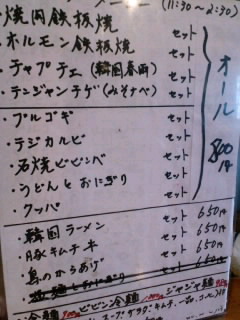 (11:30〜2:30)
・焼肉鉄板焼 セット
・ホルモン鉄板焼 セット
・チャプチェ(韓国春雨) セット
・テンジャンチゲ(みそなべ) セット
・プルコギ セット
・テジカルビ セット
・石焼ビビンベ セット
・うどんとおにぎり セット
・クッパ セット
オール800円
・韓国ラーメン セット 650円
・豚キムチ丼 セット 650円
・鳥のからあげ セット 650円
ビビン冷麺 ジャジャ麺